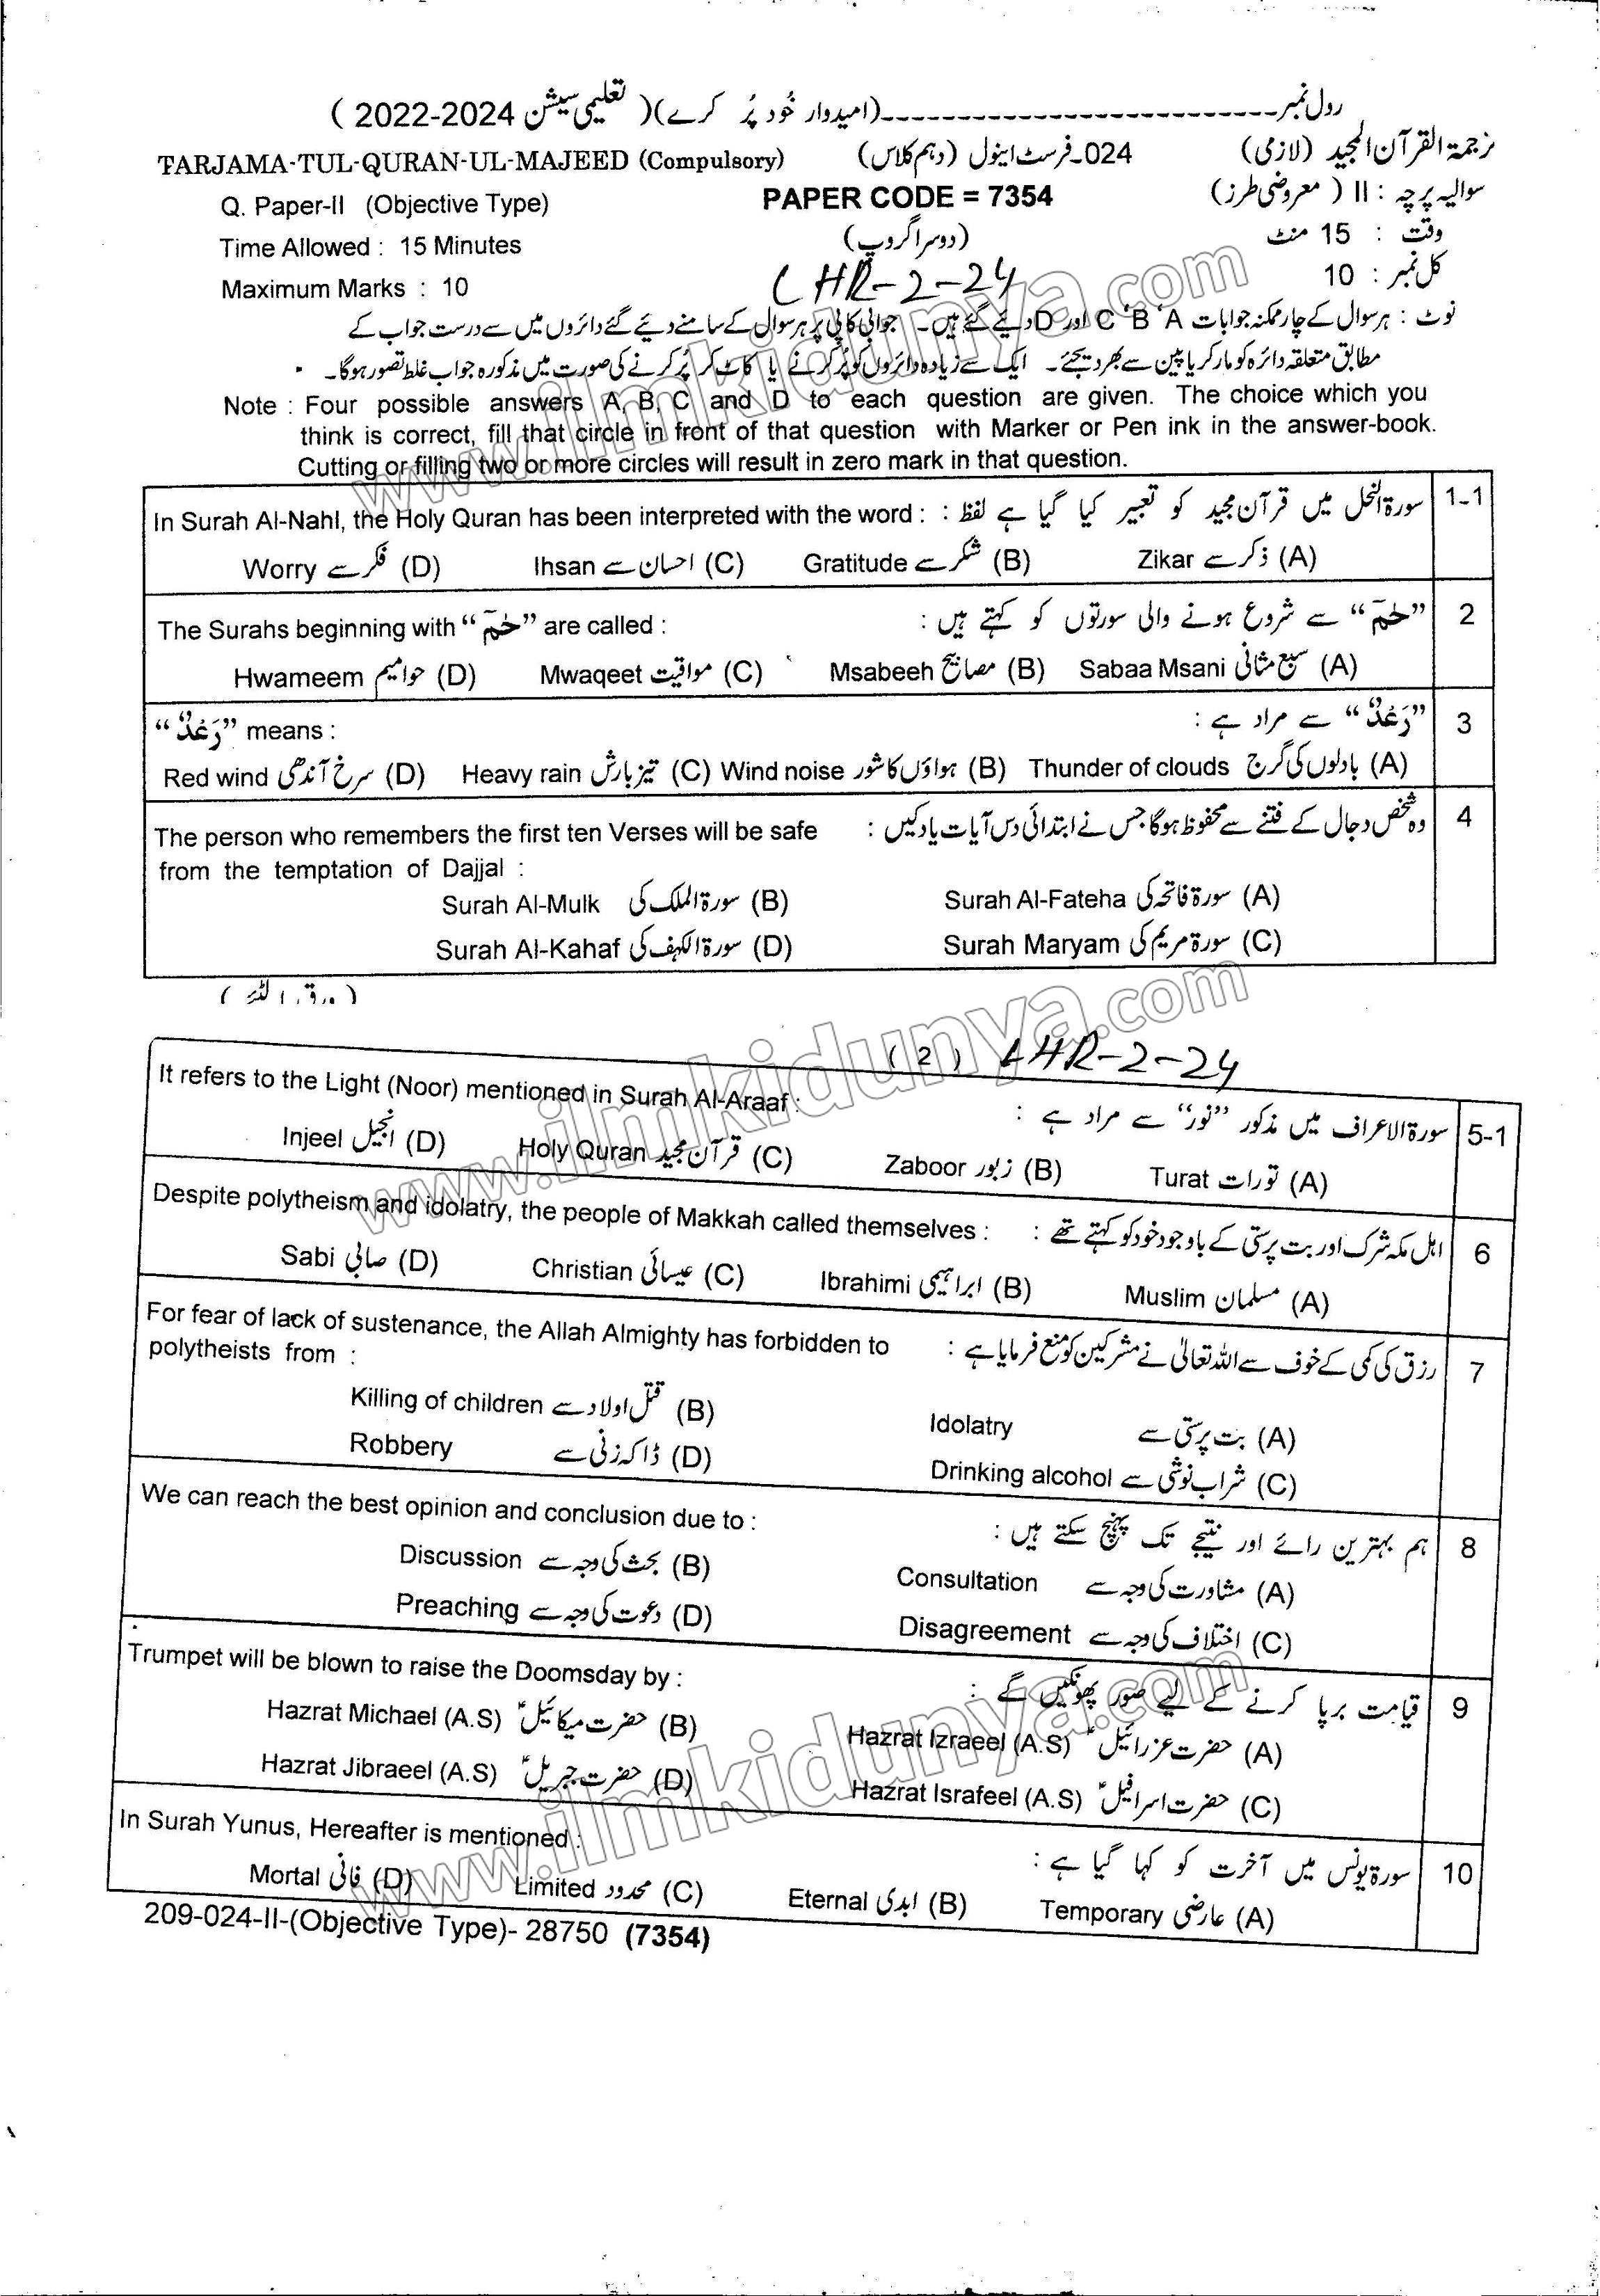 رول نمبر---------------------------(امیدوار خُود پُر کرے)( تعلیمی سیشن 2024-2022 )
ترجمۃ القرآن المجید (لازمی) 024-فرسٹ اینول (دہم کلاس) TARJAMA-TUL-QURAN-UL-MAJEED (Compulsory)
سوالیہ پرچہ : II ( معروضی طرز) PAPER CODE = 7354 Q. Paper-II (Objective Type)
وقت : 15 منٹ (دوسرا گروپ) Time Allowed : 15 Minutes
کل نمبر : 10 LHR-2-24 Maximum Marks : 10
نوٹ : ہر سوال کے چار ممکنہ جوابات A ' B ' C اور D دیئے گئے ہیں۔ جوابی کاپی پر ہر سوال کے سامنے دیئے گئے دائروں میں سے درست جواب کے
مطابق متعلقہ دائرہ کو مارکر یا پین سے بھر دیجئے۔ ایک سے زیادہ دائروں کو پُر کرنے یا کاٹ کر پُر کرنے کی صورت میں مذکورہ جواب غلط تصور ہوگا۔
Note : Four possible answers A, B, C and D to each question are given. The choice which you
think is correct, fill that circle in front of that question with Marker or Pen ink in the answer-book.
Cutting or filling two or more circles will result in zero mark in that question.
1-1 سورۃ النحل میں قرآن مجید کو تعبیر کیا گیا ہے لفظ : In Surah Al-Nahl, the Holy Quran has been interpreted with the word :
(A) ذکر سے Zikar (B) شکر سے Gratitude (C) احسان سے Ihsan (D) فکر سے Worry
2 ”حٰمٓ“ سے شروع ہونے والی سورتوں کو کہتے ہیں : The Surahs beginning with “حٰمٓ” are called :
(A) سبع مثانی Sabaa Msani (B) مصابیح Msabeeh (C) مواقیت Mwaqeet (D) حوامیم Hwameem
3 ”رَعْدٌ“ سے مراد ہے : “رَعْدٌ” means :
(A) بادلوں کی گرج Thunder of clouds (B) ہواؤں کا شور Wind noise (C) تیز بارش Heavy rain (D) سرخ آندھی Red wind
4 وہ شخص دجال کے فتنے سے محفوظ ہوگا جس نے ابتدائی دس آیات یاد کیں : The person who remembers the first ten Verses will be safe
from the temptation of Dajjal :
(A) سورۃ فاتحہ کی Surah Al-Fateha (B) سورۃ الملک کی Surah Al-Mulk
(C) سورۃ مریم کی Surah Maryam (D) سورۃ الکہف کی Surah Al-Kahaf
( ورق الٹئے )
( 2 ) LHR-2-24
5-1 سورۃ الاعراف میں مذکور ”نور“ سے مراد ہے : It refers to the Light (Noor) mentioned in Surah Al-Araaf :
(A) تورات Turat (B) زبور Zaboor (C) قرآن مجید Holy Quran (D) انجیل Injeel
6 اہل مکہ شرک اور بت پرستی کے باوجود خود کو کہتے تھے : Despite polytheism and idolatry, the people of Makkah called themselves :
(A) مسلمان Muslim (B) ابراہیمی Ibrahimi (C) عیسائی Christian (D) صابی Sabi
7 رزق کی کمی کے خوف سے اللہ تعالیٰ نے مشرکین کو منع فرمایا ہے : For fear of lack of sustenance, the Allah Almighty has forbidden to
polytheists from :
(A) بت پرستی سے Idolatry (B) قتل اولاد سے Killing of children
(C) شراب نوشی سے Drinking alcohol (D) ڈاکہ زنی سے Robbery
8 ہم بہترین رائے اور نتیجے تک پہنچ سکتے ہیں : We can reach the best opinion and conclusion due to :
(A) مشاورت کی وجہ سے Consultation (B) بحث کی وجہ سے Discussion
(C) اختلاف کی وجہ سے Disagreement (D) دعوت کی وجہ سے Preaching
9 قیامت برپا کرنے کے لیے صور پھونکیں گے : Trumpet will be blown to raise the Doomsday by :
(A) حضرت عزرائیلؑ Hazrat Izraeel (A.S) (B) حضرت میکائیلؑ Hazrat Michael (A.S)
(C) حضرت اسرافیلؑ Hazrat Israfeel (A.S) (D) حضرت جبریلؑ Hazrat Jibraeel (A.S)
10 سورۃ یونس میں آخرت کو کہا گیا ہے : In Surah Yunus, Hereafter is mentioned :
(A) عارضی Temporary (B) ابدی Eternal (C) محدود Limited (D) فانی Mortal
209-024-II-(Objective Type)- 28750 (7354)
www.ilmkidunya.com
www.ilmkidunya.com
www.ilmkidunya.com